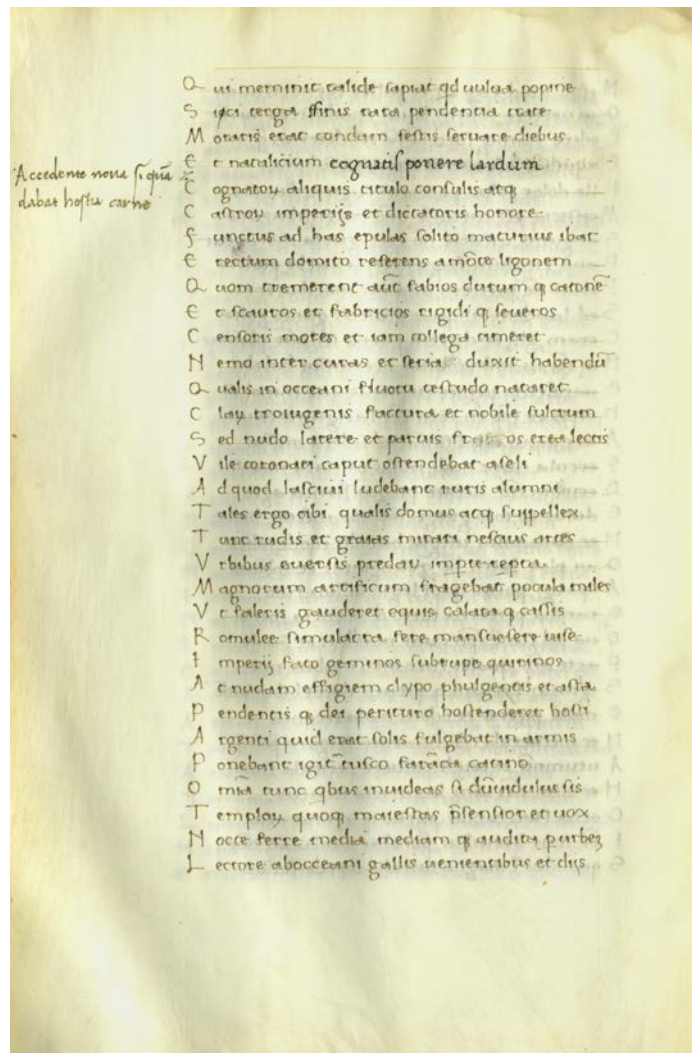 Qui meminit calide sapiat qd uulua popine
Sicci terga ssinis rara pendentia crate
Moraris erat condam festis seruare diebus
Et natalicium cognatis ponere lardum
Accedente noua si quā
dabat hostia carne
Cognatoꝝ aliquis titulo consulis atqꝫ
Castroꝝ imperijs et dictatoris honore
Functus ad has epulas solito maturius ibat
Erectum domito referens a mōte ligonem
Quom tremerent aut̄ fabios durum qꝫ catonē
Et scauros et fabricios rigidi qꝫ seueros
Censoris mores et iam collega timeret
Nemo inter curas et seria duxit habendū
Qualis in occeani fluctu testudo nataret
Claꝝ troiugenis factura et nobile fulcrum
Sed nudo latere et paruis frons erea lectis
Vile coronati caput ostendebat aseli
Ad quod lasciui ludebant ruris alumni
Tales ergo cibi qualis domus atqꝫ suppellex
Tunc rudis et graias mirari nescius artes
Vrbibus euersis predaꝝ in parte reperta
Magnorum artificum fragebat pocula miles
Vt faleris gauderet equis calata qꝫ cassis
Romulee simulacra fere mansuesere iusse
Imperij fato geminos sub rupe quirinos
Ac nudam effigiem clypo phulgentis et asta
Pendentis qꝫ dei perituro hostenderet hosti
Argenti quid erat solis fulgebat in armis
Ponebant igit̄ tusco farāta catino
Omīa tunc qbus inuideas si liuidulus sis
Temploꝝ quoqꝫ maiestas p̄sentior et uox
Nocte ferre media mediam qꝫ audita p urbeꝫ
Lectore ab occeani gallis uenientibus et dijs